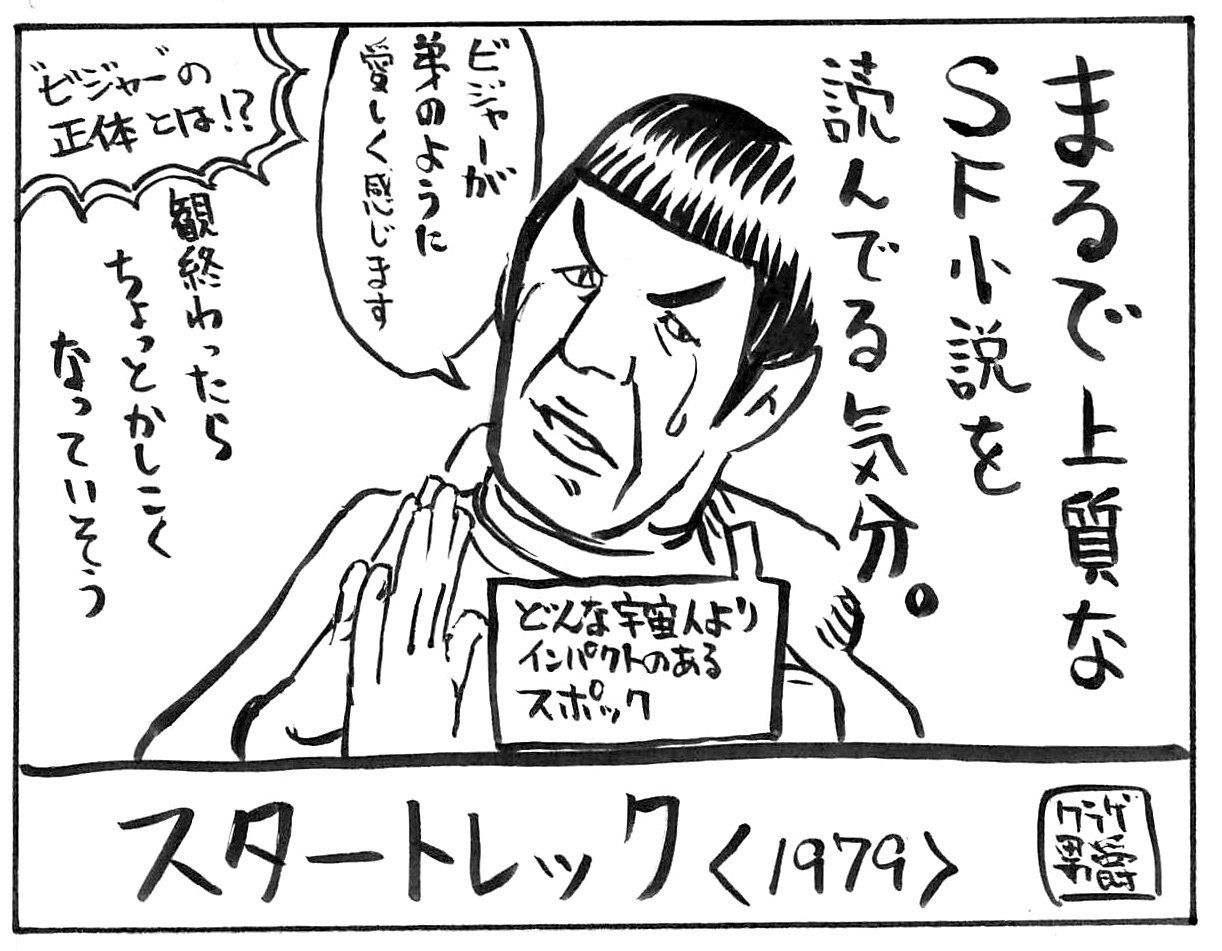 まるで上質な
SF小説を
読んでる気分。
ビジャーが
弟のように
愛しく感じます
"ビジャー"の
正体とは!?
観終わったら
ちょっとかしこく
なっていそう
どんな宇宙人より
インパクトのある
スポック
スタートレック〈1979〉
クラゲ
男爵